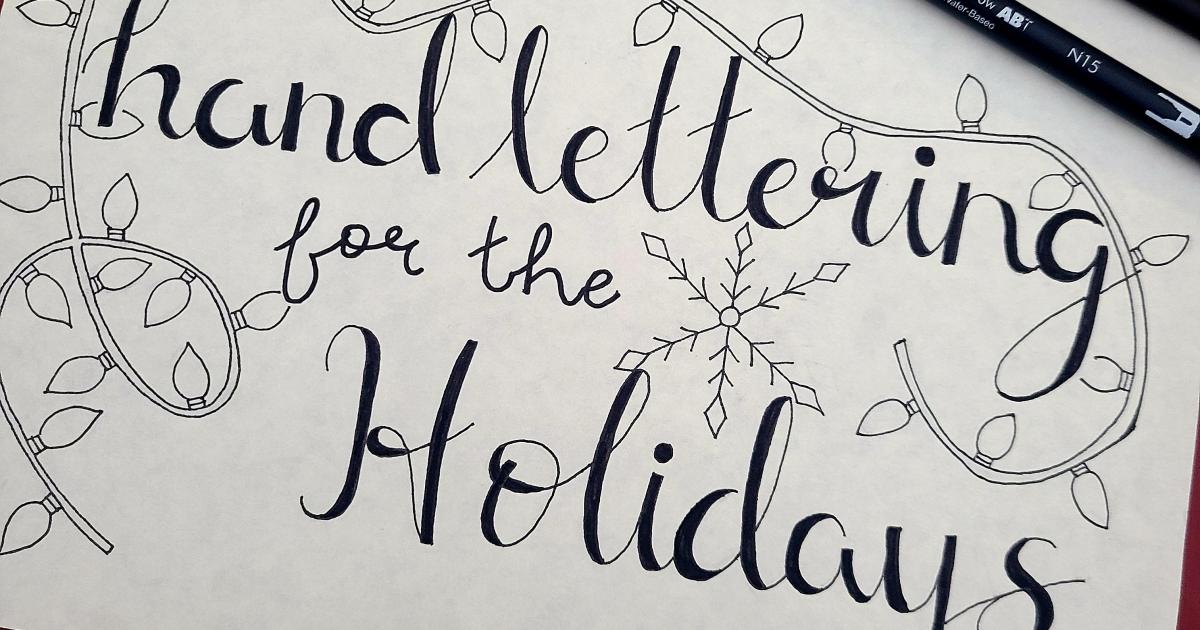 hand lettering
for the
Holidays
Water-Based ABT N15